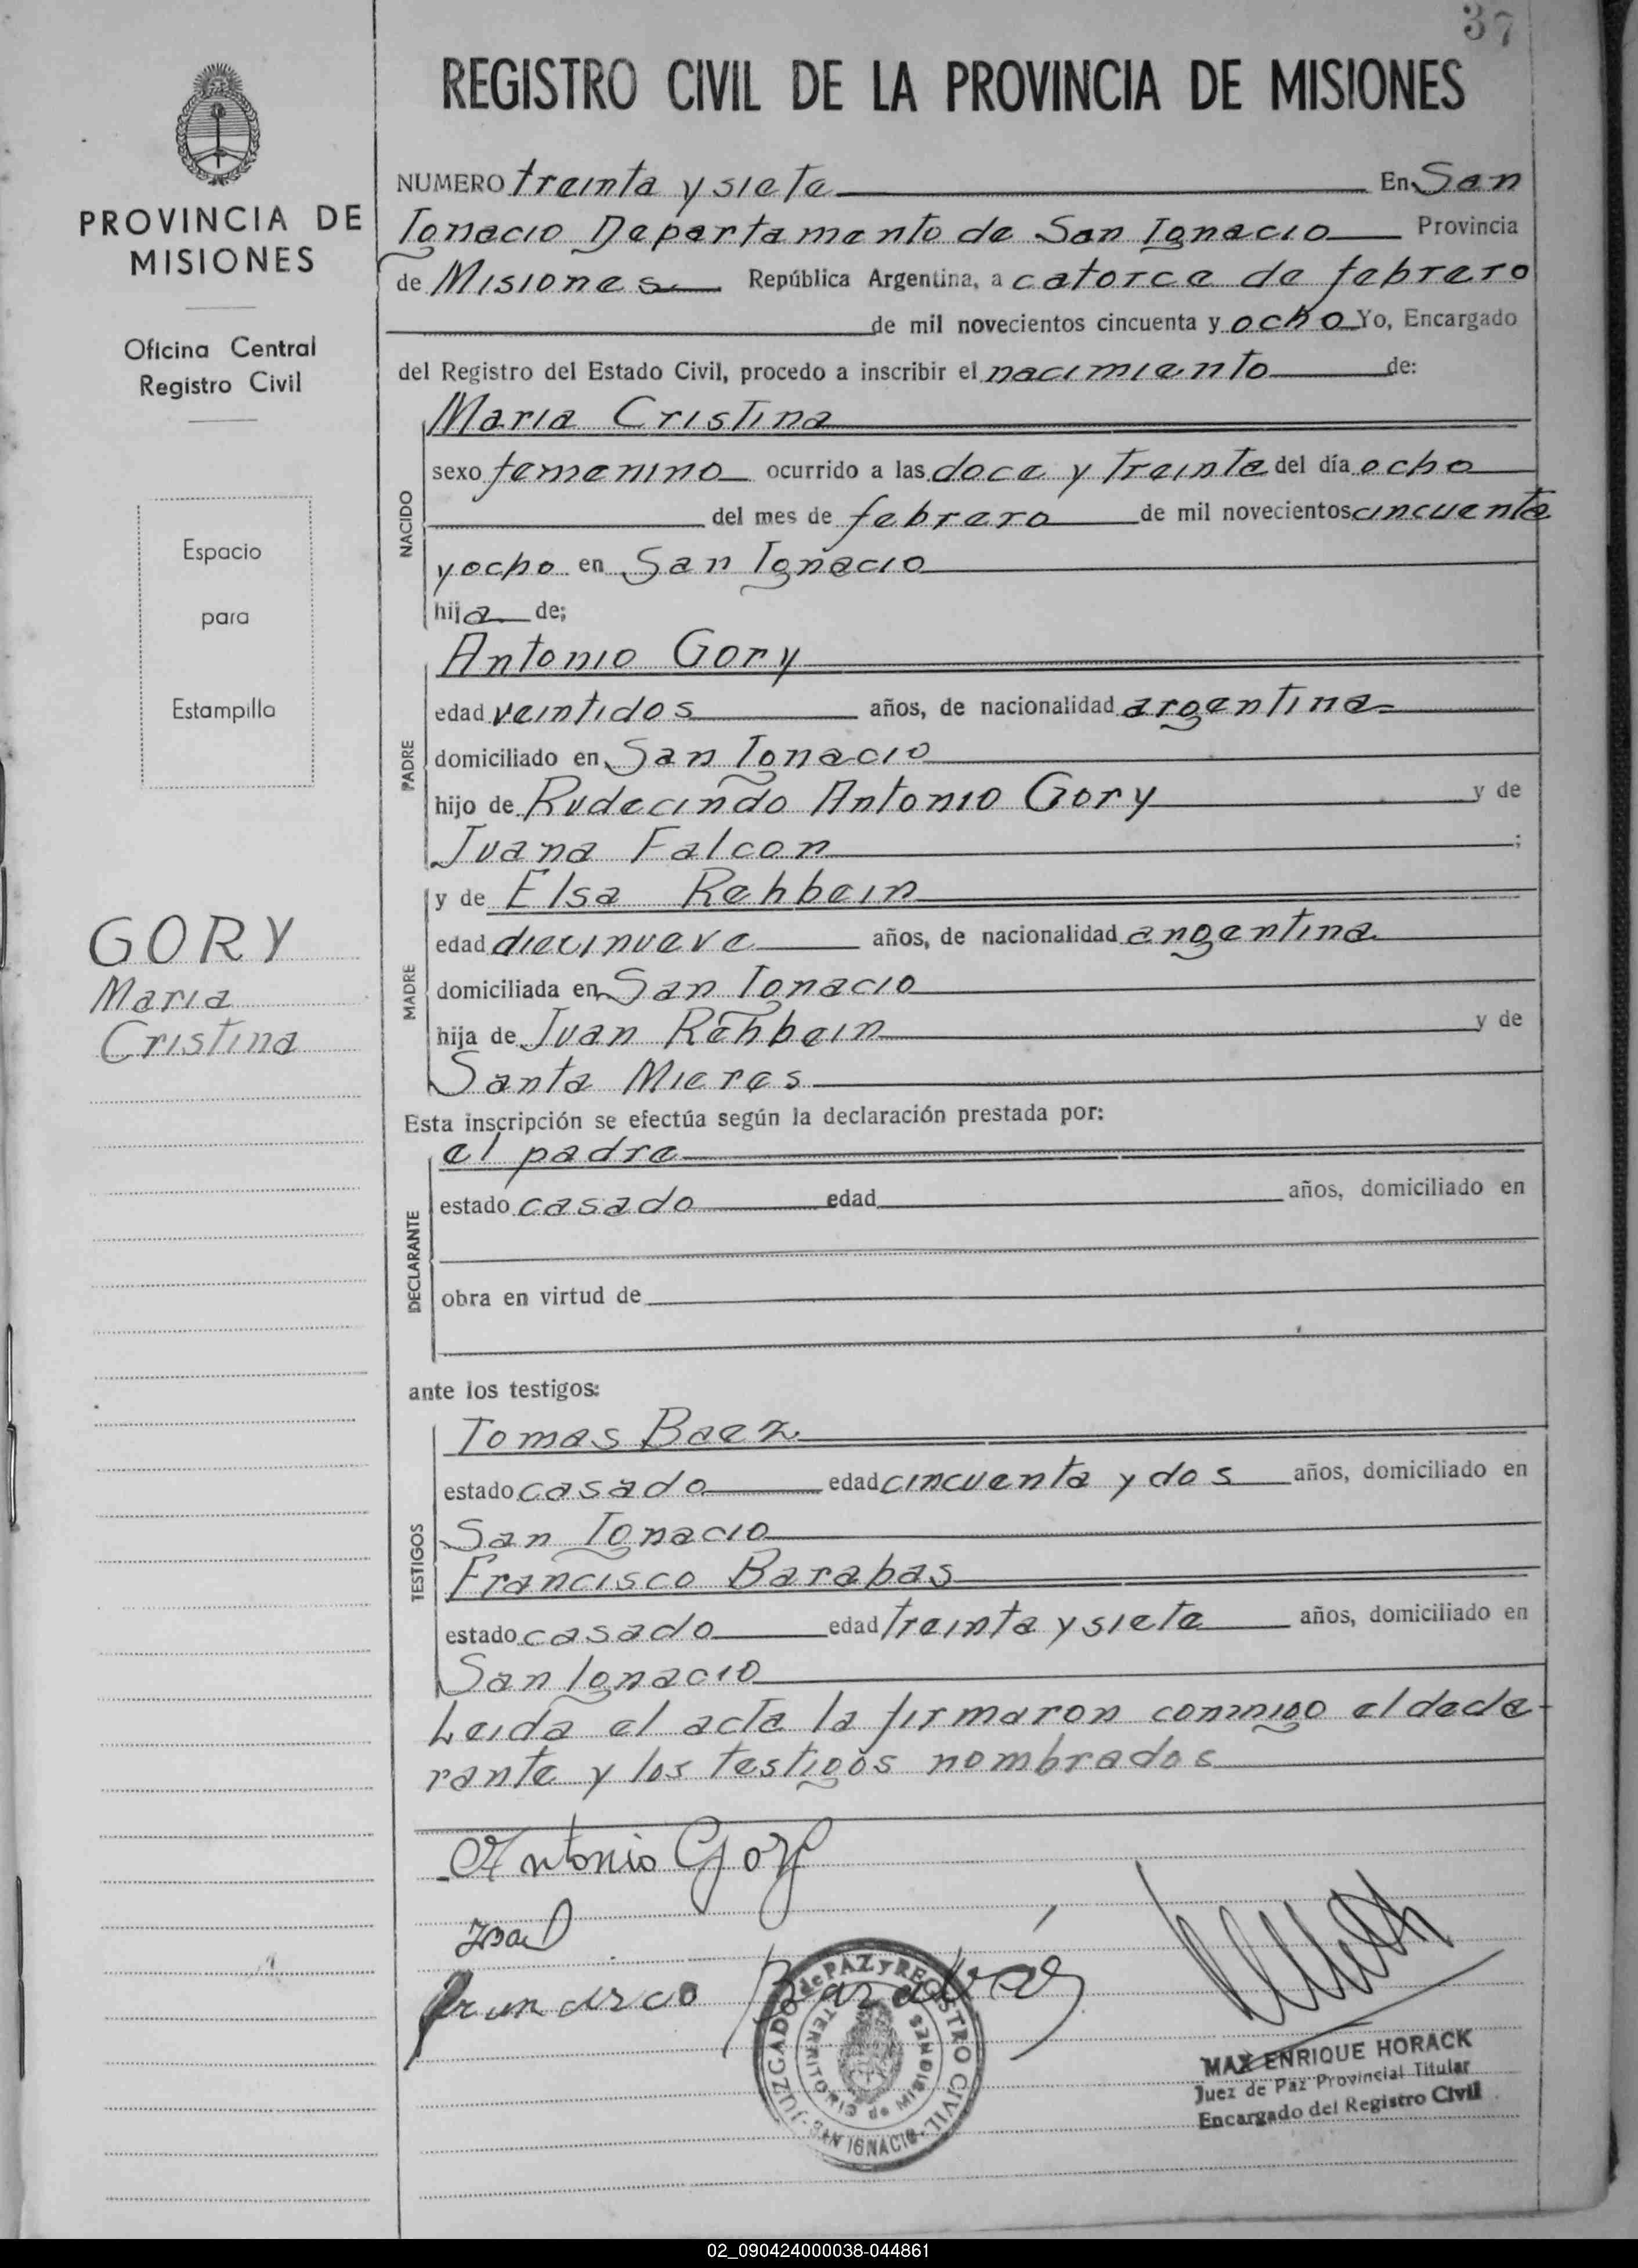 37
REGISTRO CIVIL DE LA PROVINCIA DE MISIONES
PROVINCIA DE
MISIONES
Oficina Central
Registro Civil
Espacio
para
Estampilla
GORY
Maria
Cristina
NUMERO treinta y siete En San
Ignacio Departamento de San Ignacio Provincia
de Misiones República Argentina, a catorce de febrero
de mil novecientos cincuenta y ocho Yo, Encargado
del Registro del Estado Civil, procedo a inscribir el nacimiento de:
NACIDO
Maria Cristina
sexo femenino ocurrido a las doce y treinta del día ocho
del mes de febrero de mil novecientos cincuenta
y ocho en San Ignacio
hija de;
PADRE
Antonio Gory
edad veintidos años, de nacionalidad argentina
domiciliado en San Ignacio
hijo de Rudecindo Antonio Gory y de
Juana Falcon ;
MADRE
y de Elsa Rehbein
edad diecinueve años, de nacionalidad argentina
domiciliada en San Ignacio
hija de Juan Rehbein y de
Santa Mieres
Esta inscripción se efectúa según la declaración prestada por:
DECLARANTE
el padre
estado casado edad años, domiciliado en
obra en virtud de
ante los testigos:
TESTIGOS
Tomas Baez
estado casado edad cincuenta y dos años, domiciliado en
San Ignacio
Francisco Barabas
estado casado edad treinta y siete años, domiciliado en
San Ignacio
Leida el acta la firmaron conmigo el decla-
rante y los testigos nombrados
Antonio Gory
Francisco Barabás
JUZGADO de PAZ y REGISTRO CIVIL
SAN IGNACIO
TERRITORIO de MISIONES
MAX ENRIQUE HORACK
Juez de Paz Provincial Titular
Encargado del Registro Civil
02_090424000038-044861